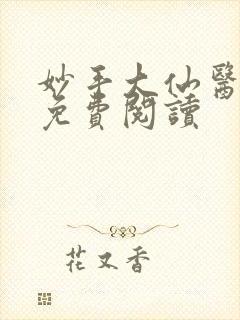 妙手大仙醫
免費閱讀
花又香